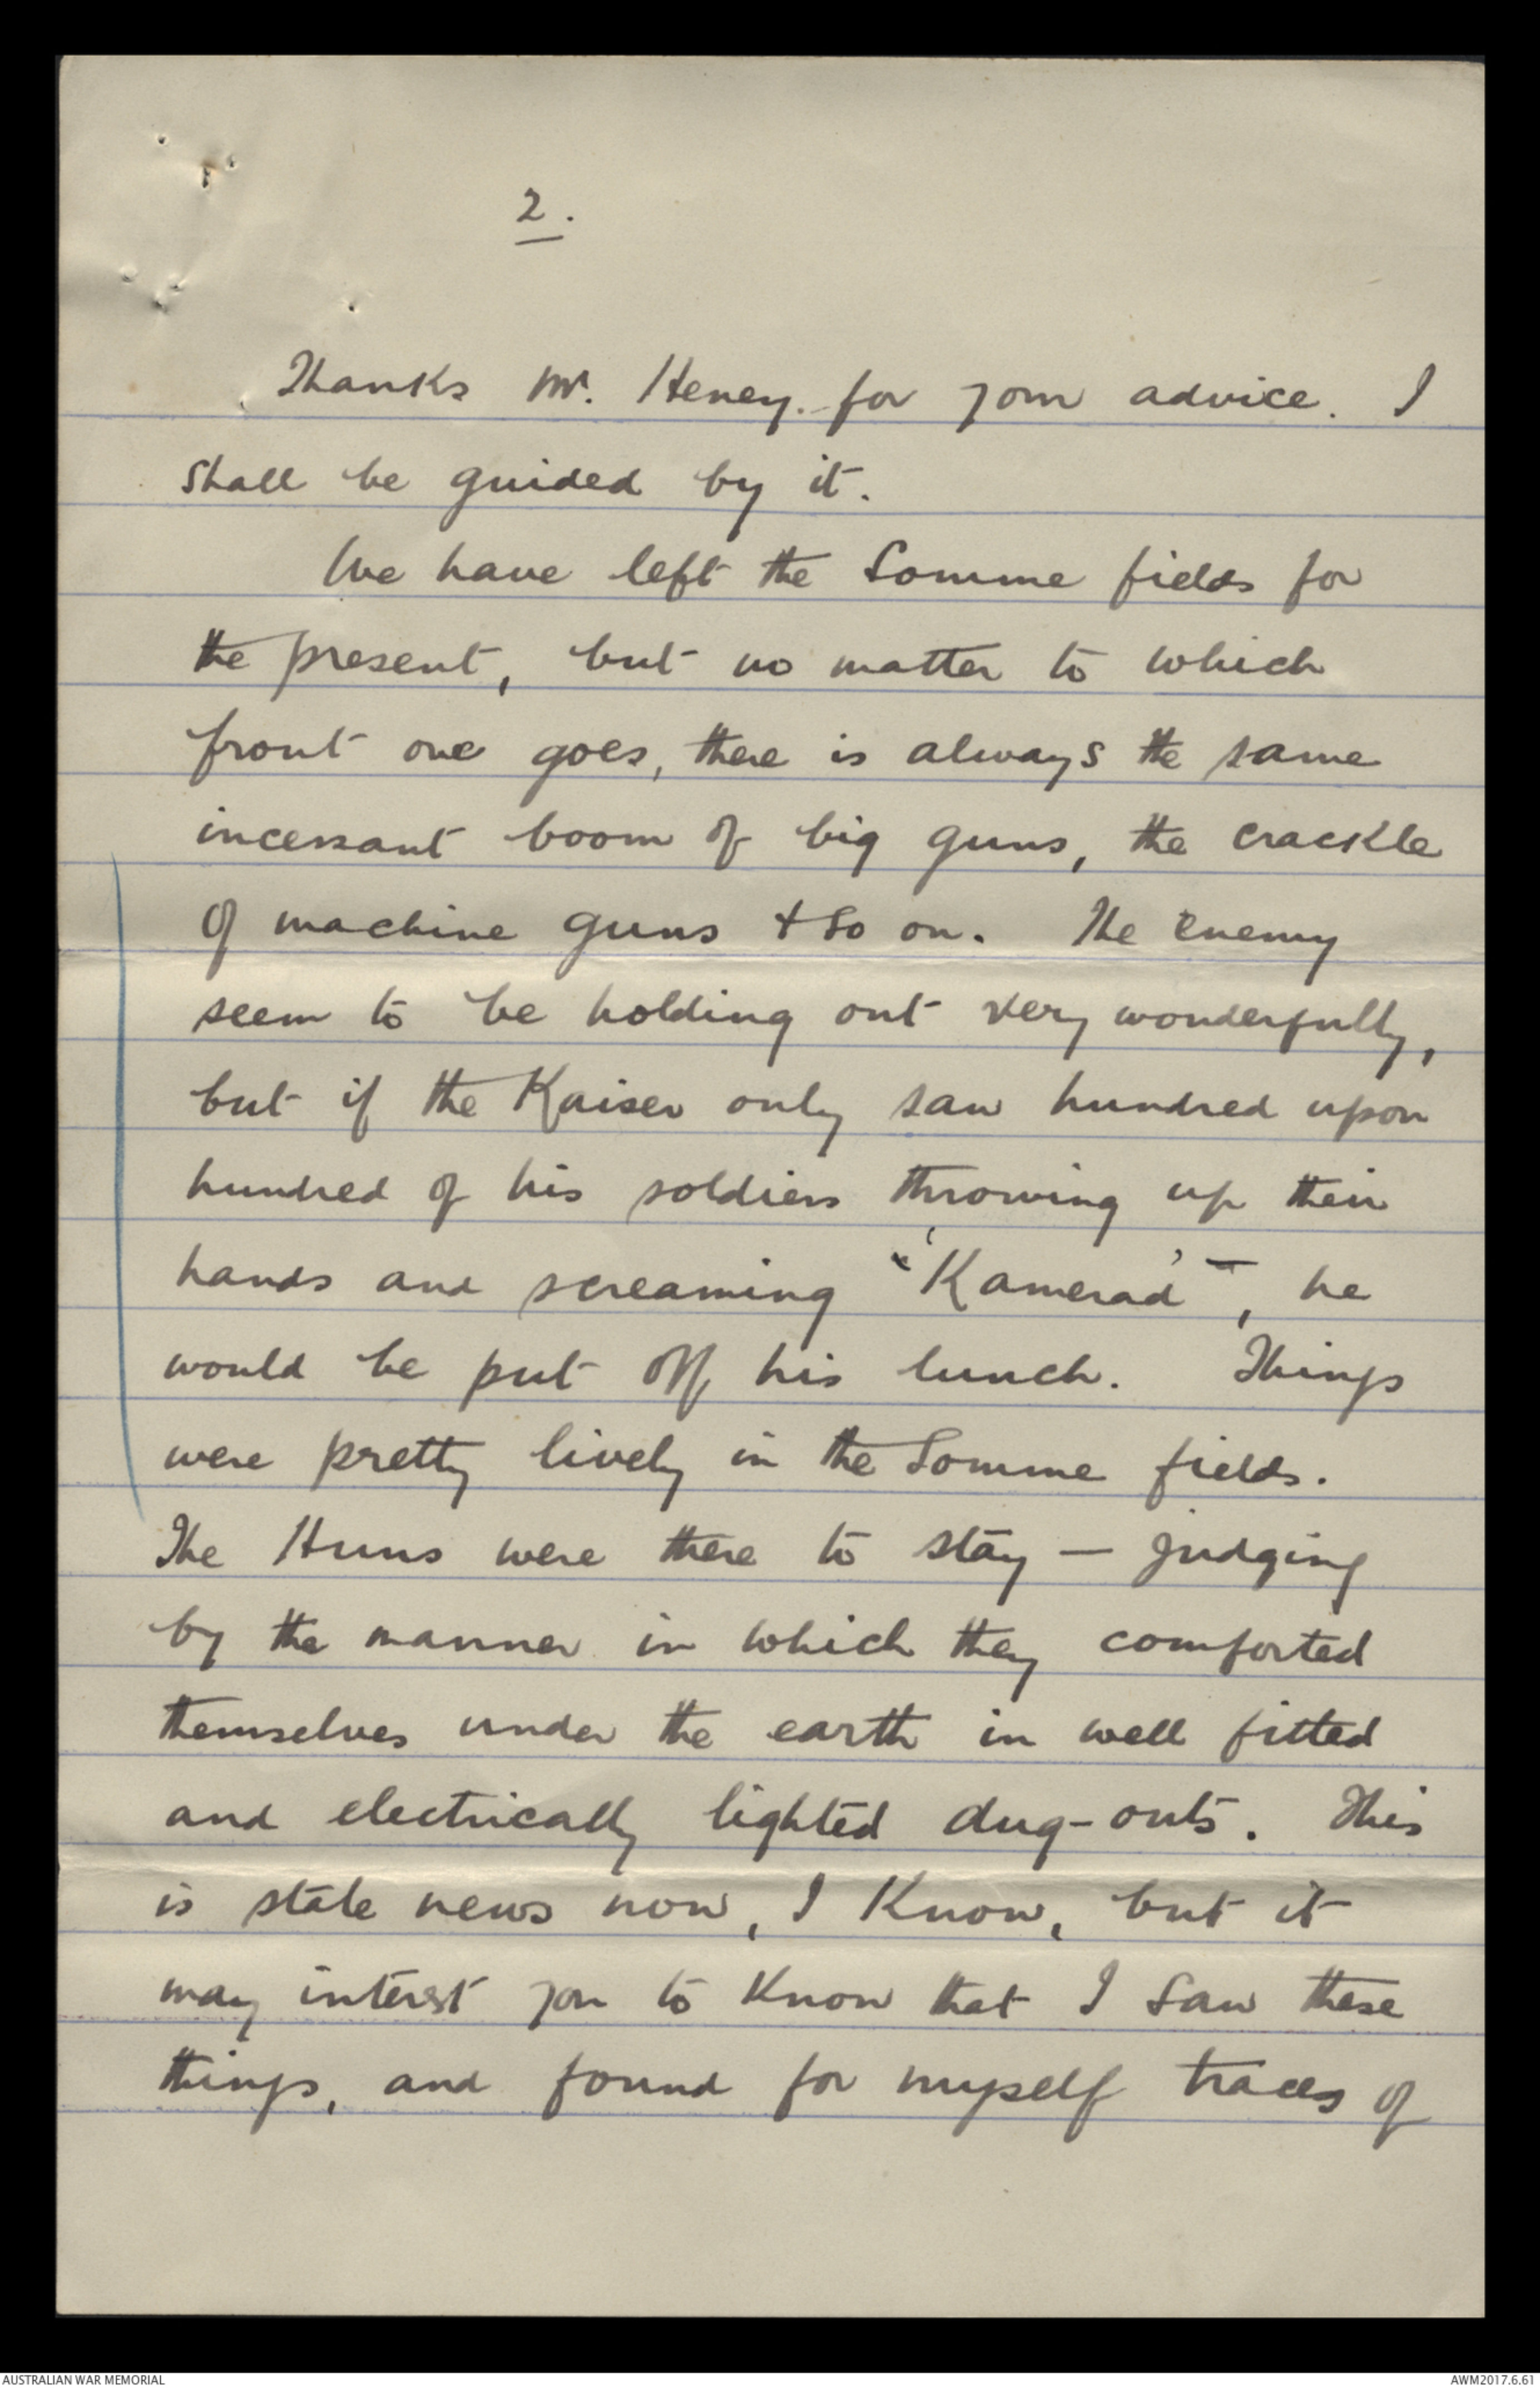 2.
Thanks Mr. Heney. for your advice. I
shall be guided by it.
We have left the Somme fields for
the present, but no matter to which
front one goes, there is always the same
incessant boom of big guns, the crackle
of machine guns + so on. The enemy
seem to be holding out very wonderfully,
but if the Kaiser only saw hundred upon
hundred of his soldiers throwing up their
hands and screaming "Kamerad", he
would be put off his lunch. Things
were pretty lively in the Somme fields.
The Huns were there to stay — judging
by the manner in which they comforted
themselves under the earth in well fitted
and electrically lighted dug-outs. This
is stale news now, I know, but it
may interest you to know that I saw these
things, and found for myself traces of
AUSTRALIAN WAR MEMORIAL
AWM2017.6.61